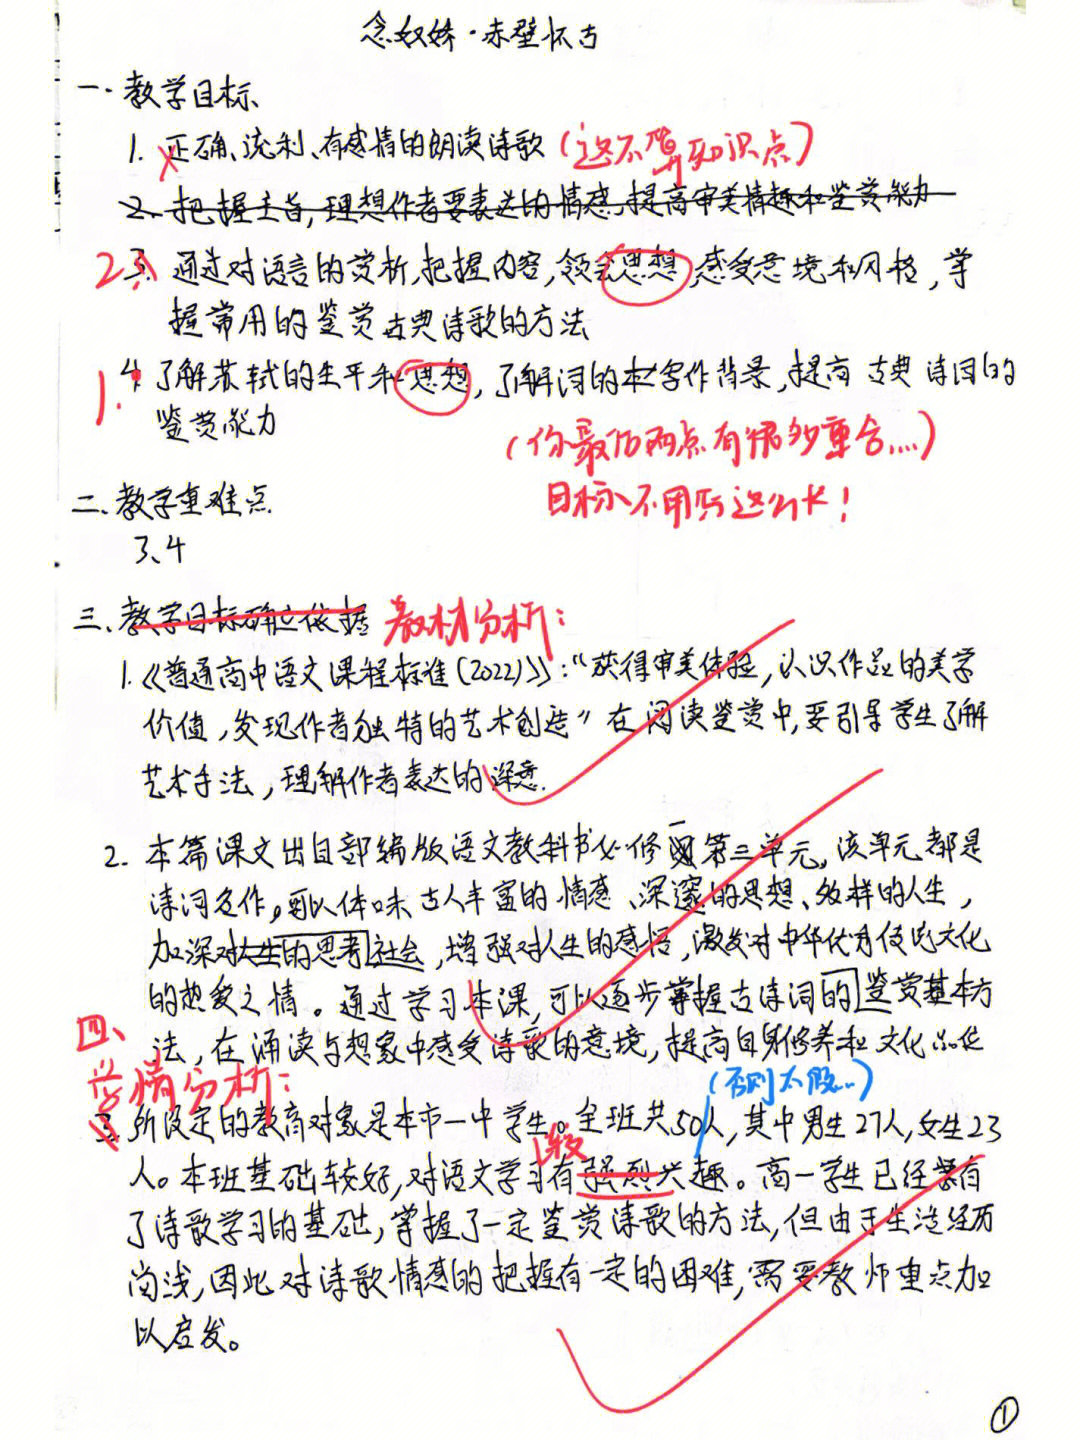 念奴娇·赤壁怀古
一.教学目标
1.正确、流利、有感情的朗读诗歌(这不算知识点)
2.把握主旨,理想作者要表达的情感,提高审美情趣和鉴赏能力
2、3.通过对语言的赏析,把握内容,领会思想,感受意境和风格,掌
握常用的鉴赏古典诗歌的方法
1.4.了解苏轼的生平和思想,了解词的本写作背景,提高古典诗词的
鉴赏能力
(你最后两点有很多重合....)
目标不用写这么长!
二、教学重难点
3、4
三、教学目标确立依据 教材分析:
1.《普通高中语文课程标准(2022)》:“获得审美体验,认识作品的美学
价值,发现作者独特的艺术创造”在阅读鉴赏中,要引导学生了解
艺术手法,理解作者表达的深意.
2.本篇课文出自部编版语文教科书必修 第三单元,该单元都是
诗词名作,可以体味古人丰富的情感、深邃的思想、多样的人生,
加深对人生的思考社会,增强对人生的感悟,激发对中华优秀传统文化
的热爱之情。通过学习本课,可以逐步掌握古诗词的鉴赏基本方
法,在诵读与想象中感受诗歌的意境,提高自身修养和文化品位
四、
学情分析:
(否则太假..)
3.所设定的教育对象是本市一中学生。全班共50人,其中男生27人,女生23
人。本班基础较好,对语文学习有强烈兴趣。高一学生已经掌有
了诗歌学习的基础,掌握了一定鉴赏诗歌的方法,但由于生活经历
尚浅,因此对诗歌情感的把握有一定的困难,需要教师重点加
以启发。
①